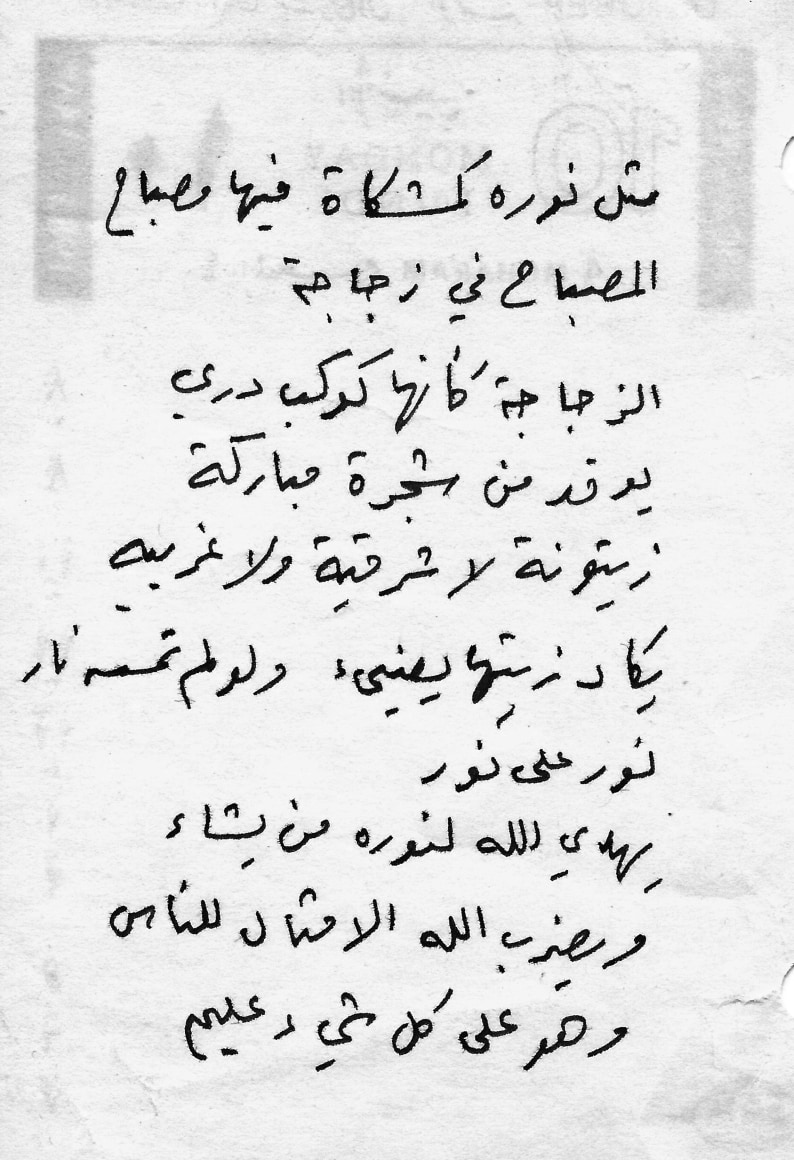 مثل نوره كمشكاة فيها مصباح
المصباح في زجاجة
الزجاجة كأنها كوكب دري
يوقد من شجرة مباركة
زيتونة لا شرقية ولا غربيه
يكاد زيتها يضيىء ولو لم تمسه نار
نور على نور
يهدي الله لنوره من يشاء
ويضرب الله الامثال للناس
وهو على كل شيء عليم